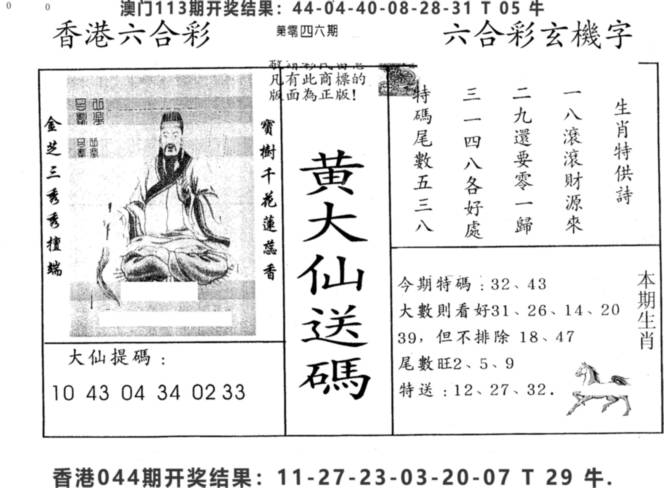 澳门113期开奖结果：44-04-40-08-28-31 T 05 牛
香港六合彩
第零四六期
六合彩玄機字
凡有此商標的
版面為正版!
金芝三秀秀檀端
寶樹千花蓮蕊香
大仙提碼：
10 43 04 34 02 33
黃大仙送碼
生肖特供詩
一八滾滾財源來
二九還要零一歸
三一四八各好處
特碼尾數五三八
今期特碼：32、43
大數則看好31、26、14、20
39，但不排除 18、47
尾數旺2、5、9
特送：12、27、32.
本期生肖
香港044期开奖结果：11-27-23-03-20-07 T 29 牛.